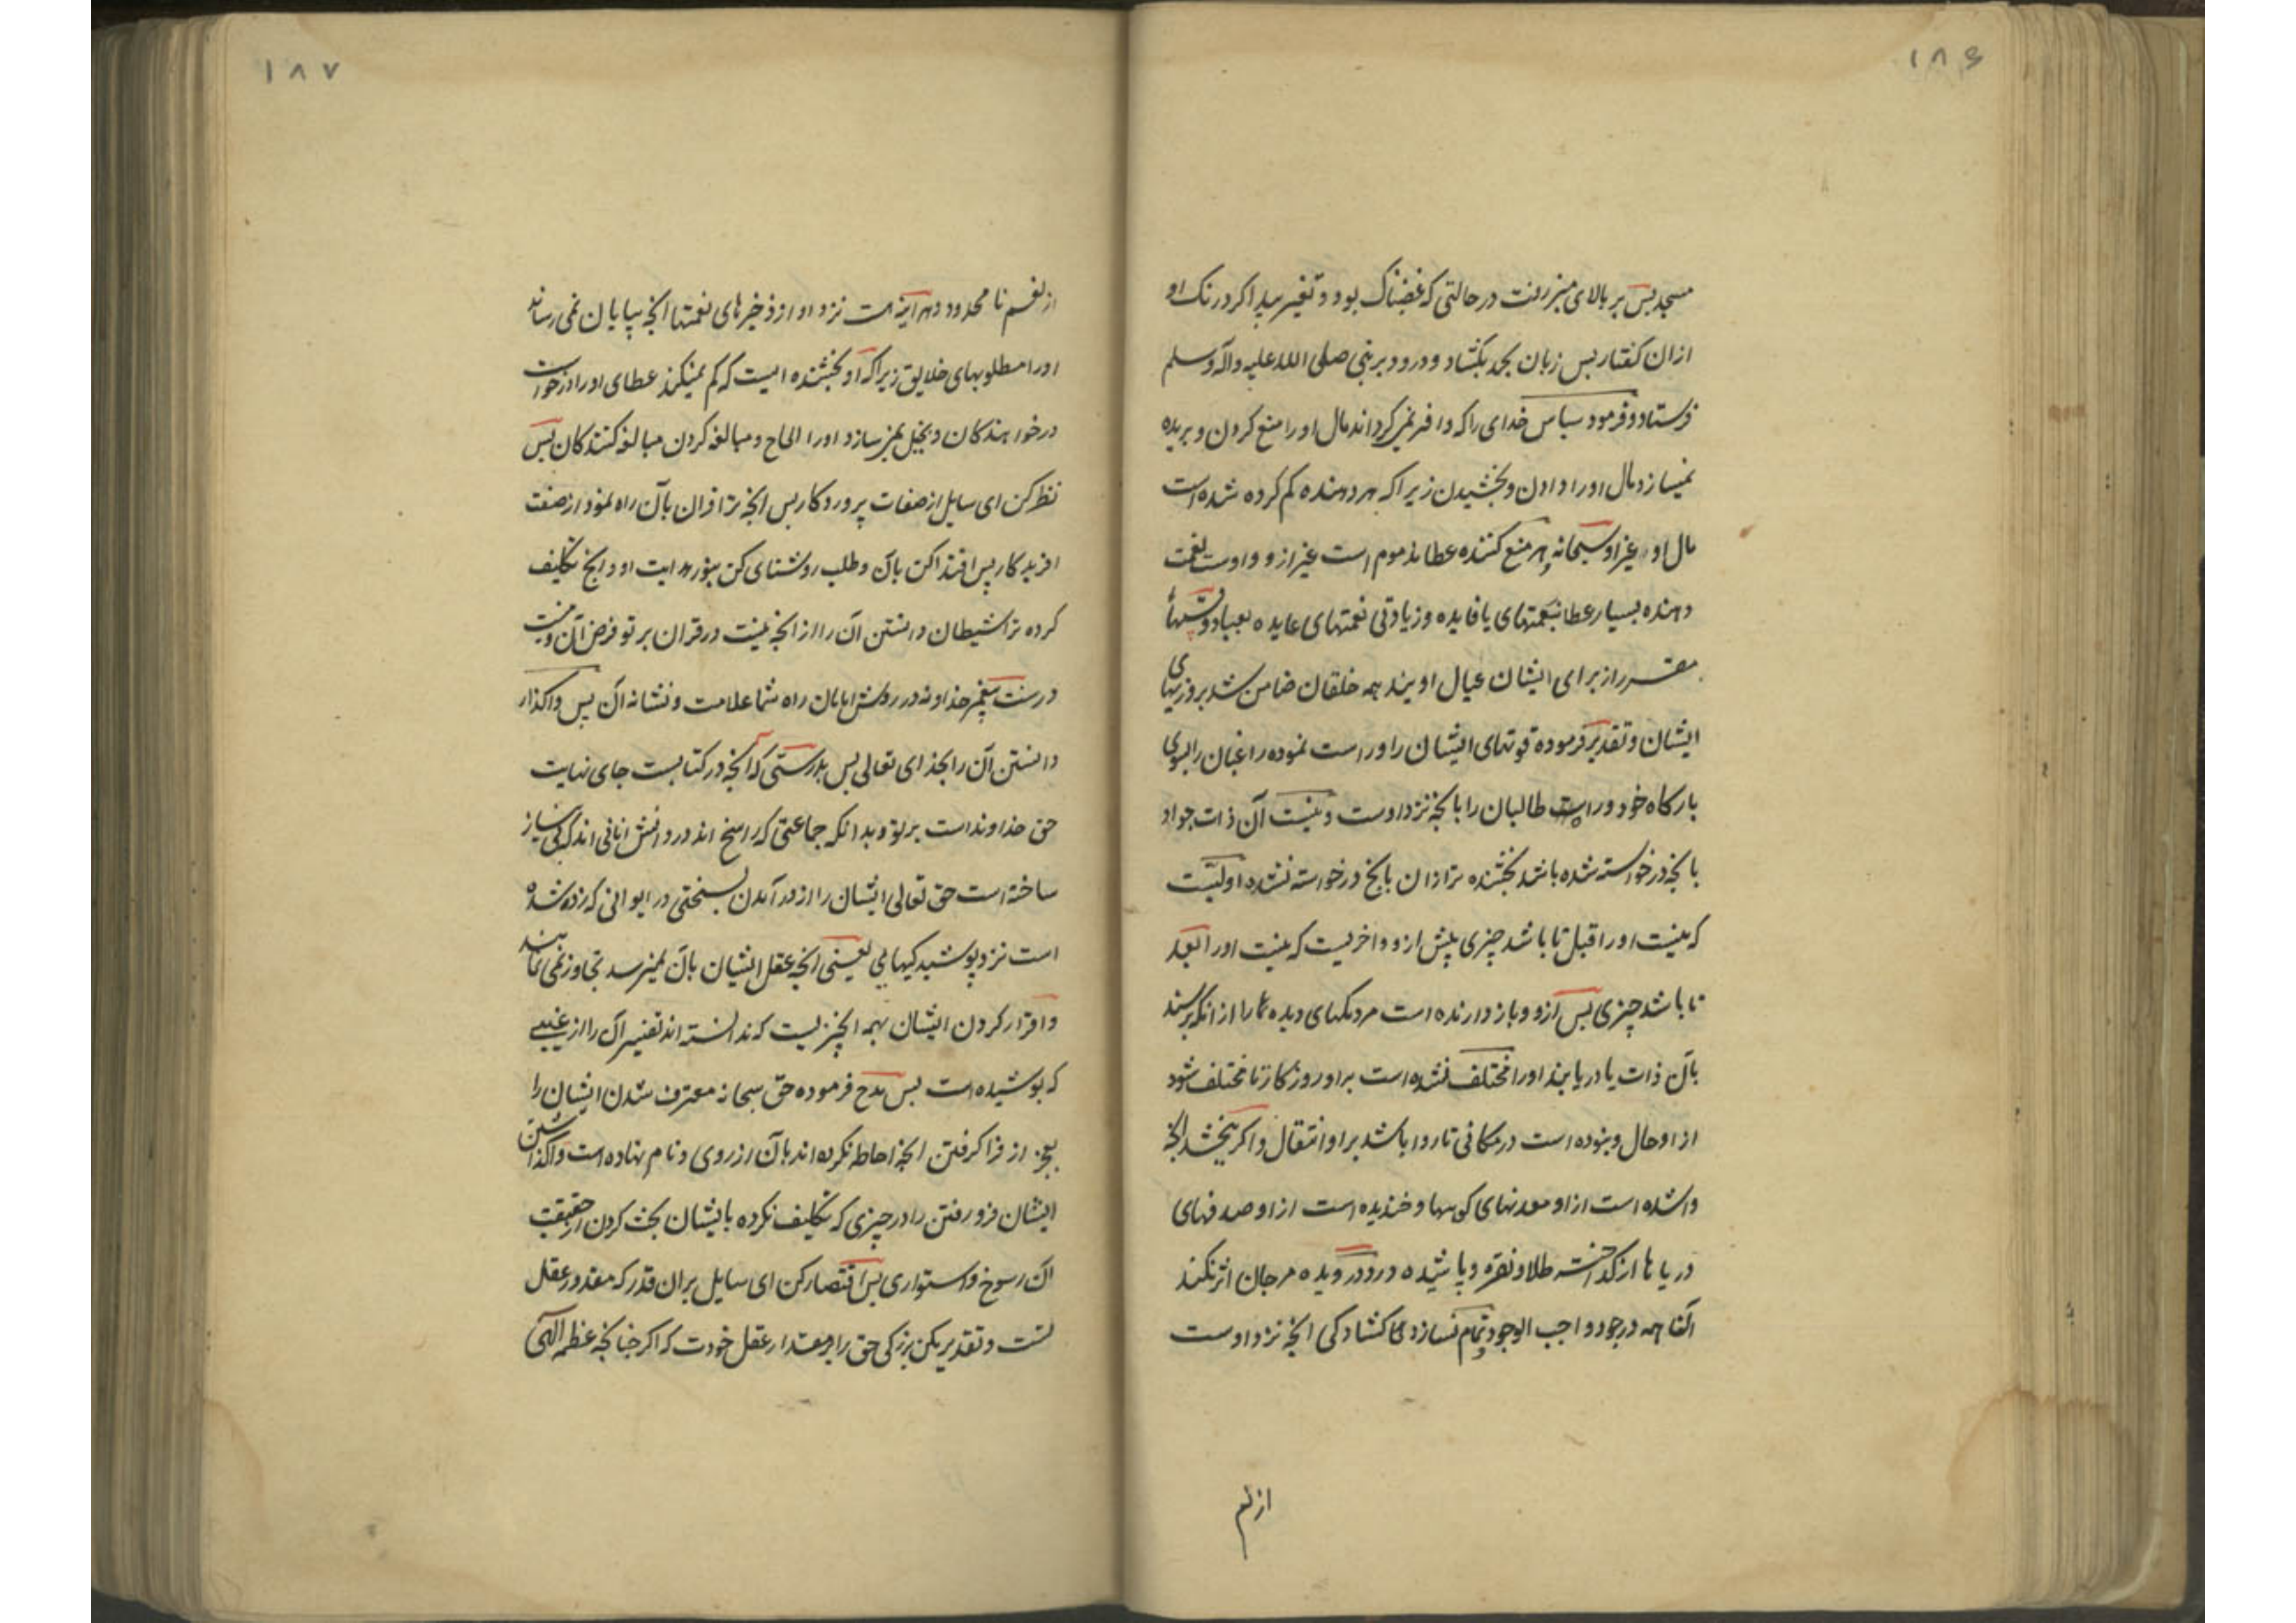 ۱۸۶
مسجد پس بر بالای منبر رفت در حالتی که غضبناک بود و تغییر پیدا کرد رنک او
ازان کفتار پس زبان بحمد بکشاد و درود بر نبی صلی الله علیه وآله وسلم
فرستاد و فرمود سپاس خدای را که وافر نمی کرداند مال او را منع کردن و بریده
نمیسازد مال او را دادن و بخشیدن زیرا که هر دهنده کم کرده شده است
مال او غیر او سبحانه و هر منع کننده عطا مذموم است غیر از و و اوست نعمت
دهنده بسیار عطا بنعمتهای با فایده و زیادتی نعمتهای عایده بعباد و قسمتها
مقرر از برای ایشان عیال اویند همه خلقان ضامن شد بروزیهای
ایشان و تقدیر فرموده قوتهای ایشان را و راست نموده راغبان را بسوی
بارکاه خود و راه طالبان را بانچه نزد اوست و نیست آن ذات جواد
بانچه درخواسته شده باشد بخشنده تر ازان بانچ درخواسته نشده اولیست
که نیست او را قبل تا باشد چیزی پیش ازو و اخریست که نیست او را بعد
تا باشد چیزی پس ازو و باز دارنده است مردمکهای دیده ها را از انکه برسند
بآن ذات یا دریابند او را مختلف نشده است براو روزکار تا مختلف شود
از او حال و نبوده است در مکانی تا روا باشد براو انتقال و اکر بخشد انچه
وا شده است ازاو معدنهای کوهها و خندیده است ازاو صدفهای
دریاها از کداخته طلا و نقره و پاشیده در و درویده مرجان اثر نکند
آنها همه در جود واجب الوجود و تمام نسازد کشادکی انچه نزد اوست
از نعم
۱۸۷
از نعم نا محدود و هر اینه هست نزد او از ذخیرهای نعمتها انچه بپایان نمی رساند
او را مطلوبهای خلایق زیرا که او بخشنده ایست که کم نمیکند عطای او را درخواست
درخواهندکان و بخیل نمیسازد او را الحاح و مبالغه کردن مبالغه کنندکان پس
نظر کن ای سایل از صفات پروردکار پس انچه ترا قران بآن راه نمود از صفت
افریدکار پس اقتدا کن بآن و طلب روشنای کن بنور هدایت او و انچ تکلیف
کرده ترا شیطان دانستن آن را از انچه نیست در قران بر تو فرض آن و نیست
در سنت پیغمبر خدا و نه در روش امامان راه شما علامت و نشانه آن پس واکذار
دانستن آن را بخدای تعالی پس بدرستی که انچه در کتابست جای نهایت
حق خداوند است بر تو و بدانکه جماعتی که راسخ اند در دانش انانی اند که بی نیاز
ساخته است حق تعالی ایشان را از در آمدن بسختی در ابوابی که زده شده
است نزد پوشیدکیها یعنی انچه عقل ایشان بآن نمیرسد تجاوز نمی نمایند
و اقرار کردن ایشان بهمه انچیزیست که ندانسته اند تفسیر آن را از غیبی
که پوشیده است پس مدح فرموده حق سبحانه معترف شدن ایشان را
بعجز از فرا کرفتن انچه احاطه نکرده اند بآن از روی و نام نهاده است واکذاشتن
ایشان فرو رفتن را در چیزی که تکلیف نکرده بایشان بحث کردن از حقیقت
آن رسوخ و استواری پس اقتصار کن ای سایل بران قدر که مقدور عقل
تست و تقدیر مکن بزرکی حق را بر مقدار عقل خودت که اکر چنانچه عظم الهی